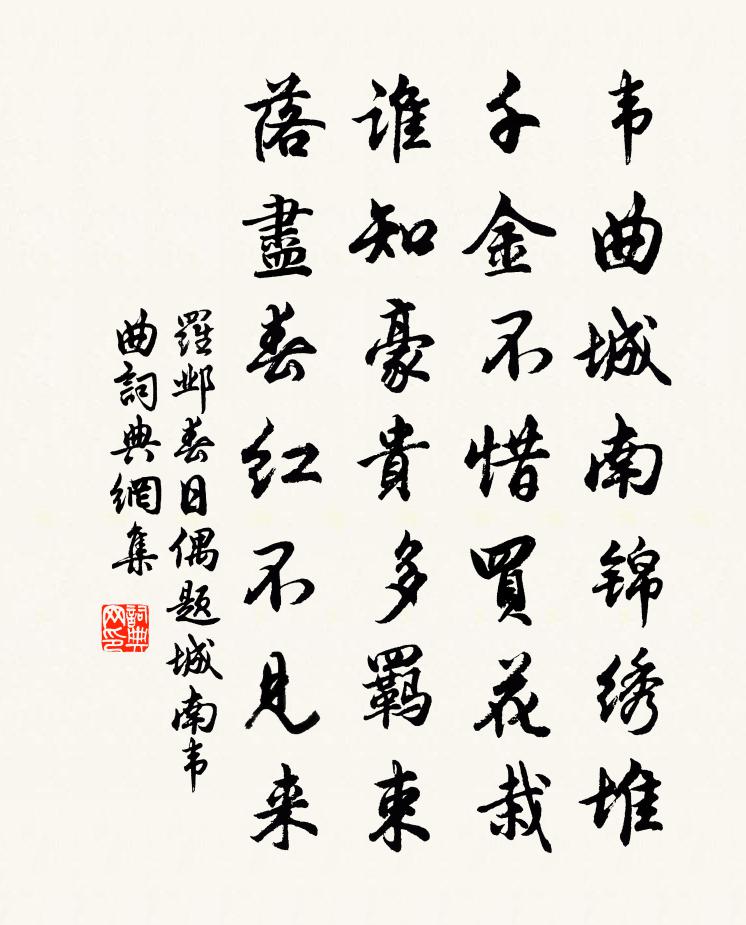 韦曲城南锦绣堆
千金不惜買花栽
谁知豪貴多羈束
落盡春红不見来
羅邺春日偶题城南韦
曲詞典網集
詞典网印